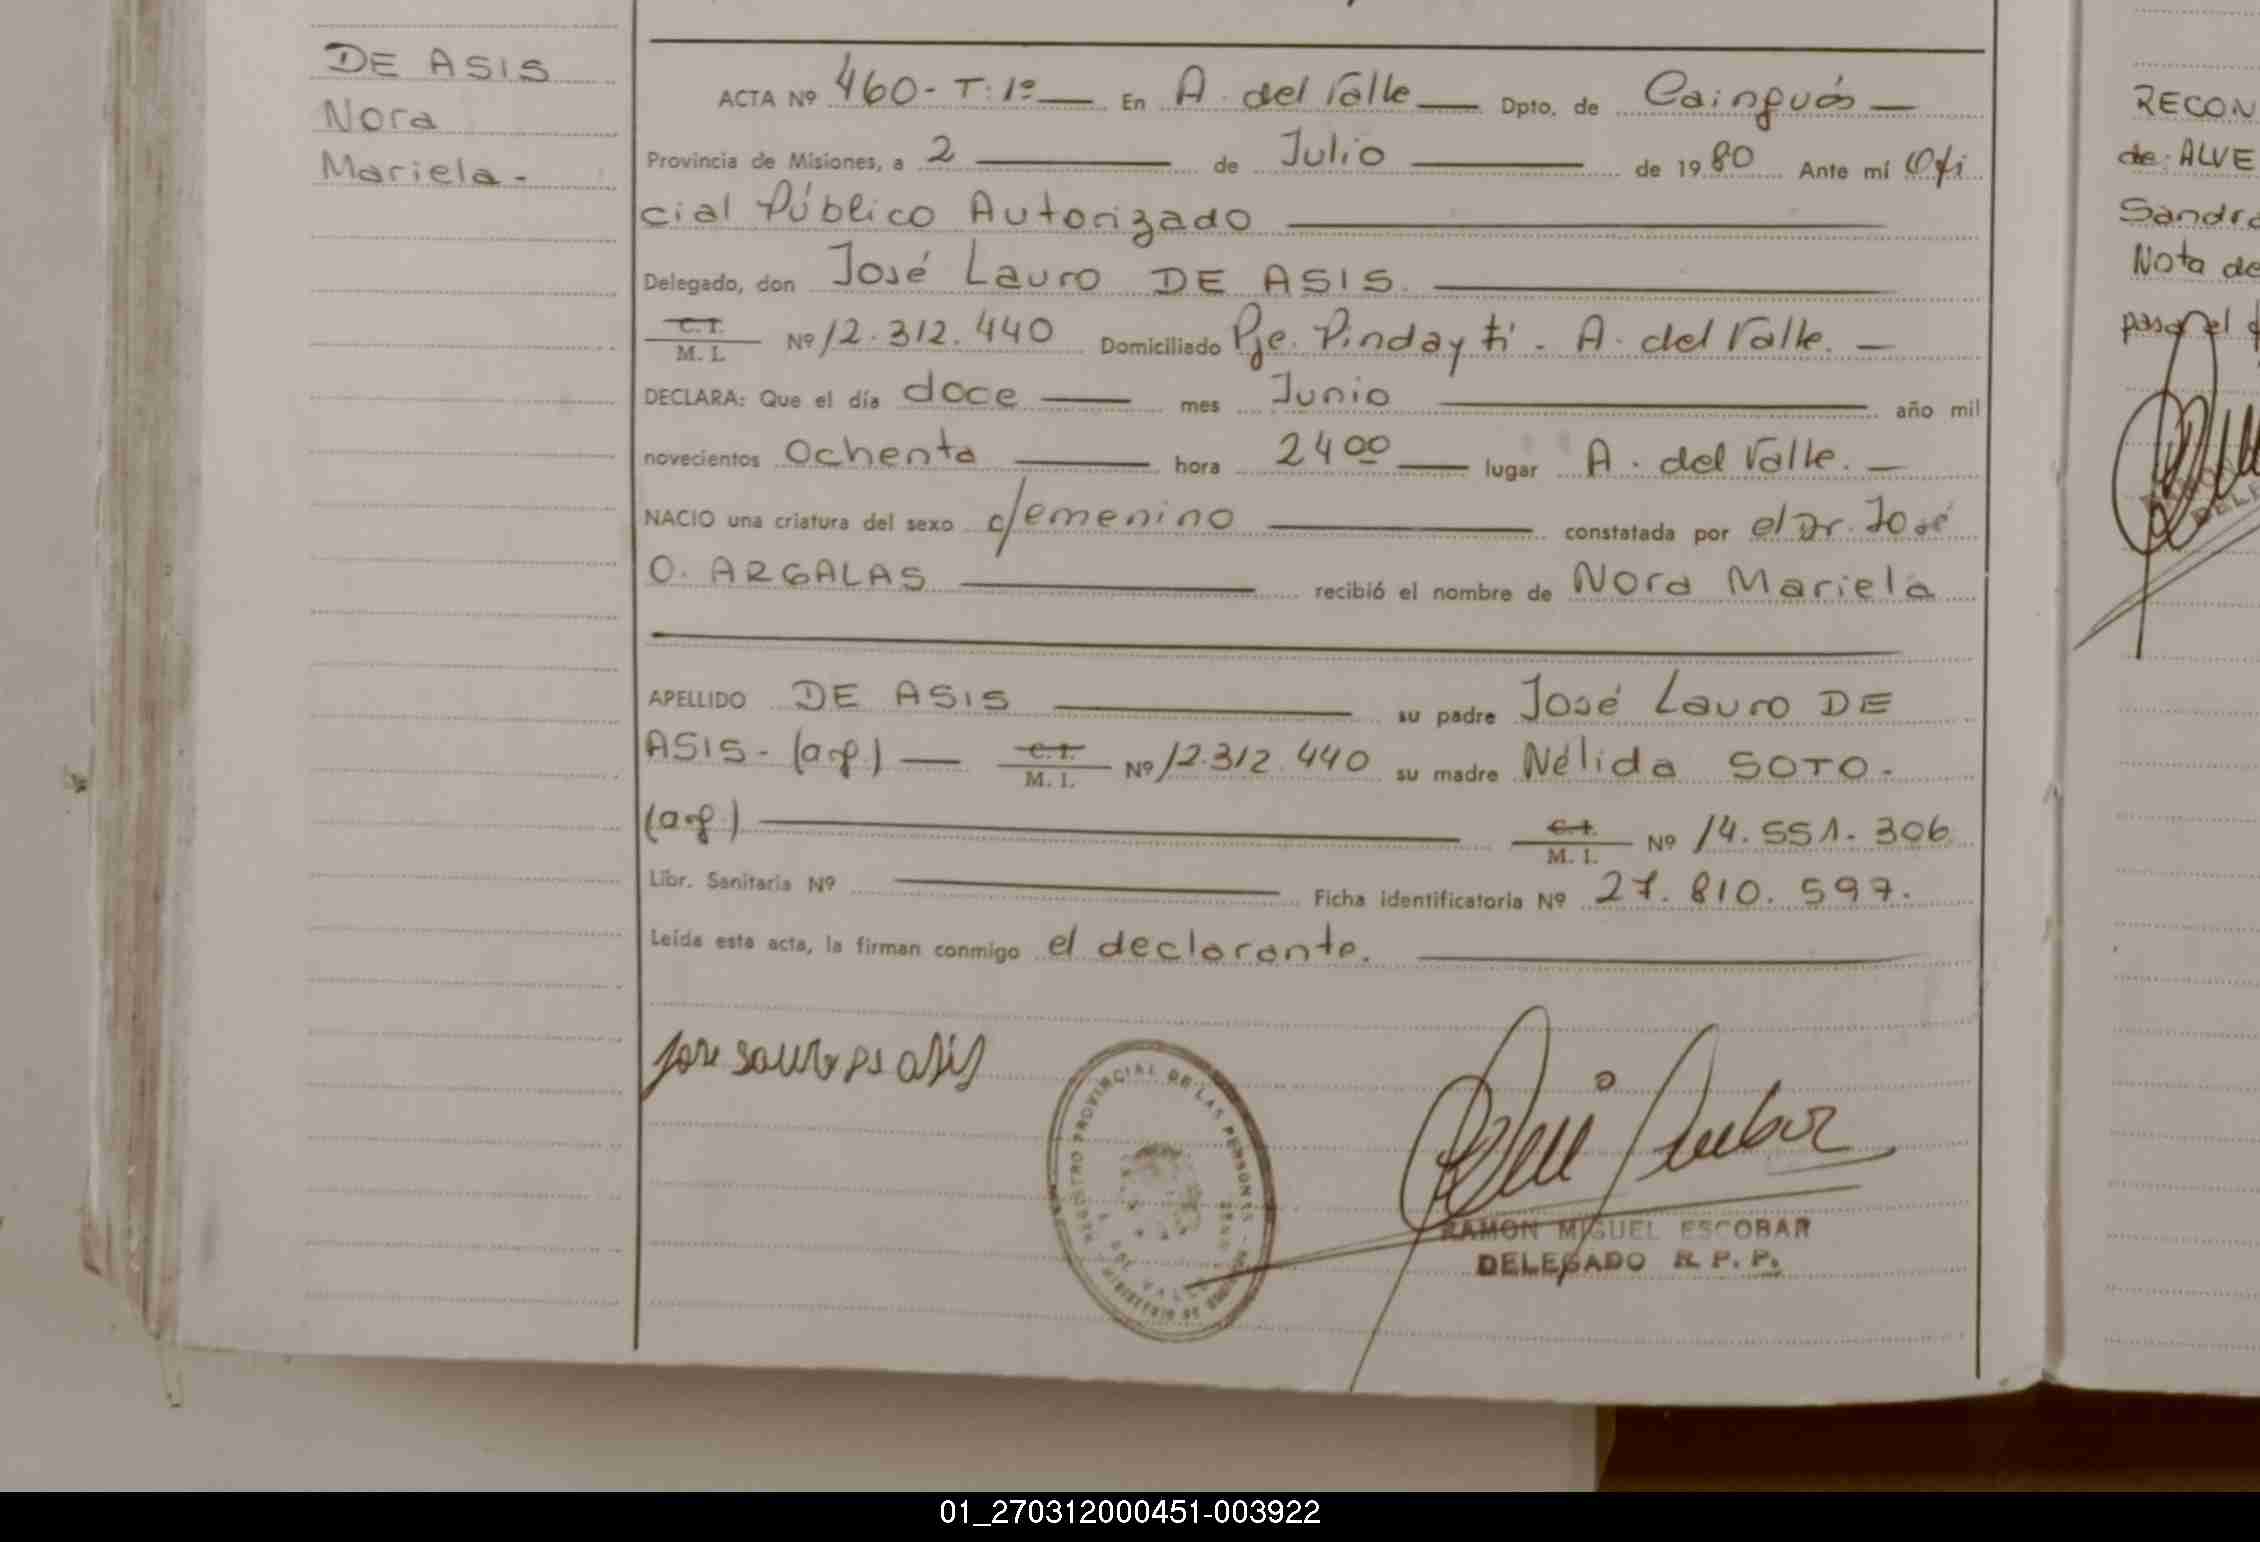 DE ASIS
Nora
Mariela -
ACTA Nº 460 - T: 1º En A. del Valle Dpto. de Cainguás
Provincia de Misiones, a 2 de Julio de 1980 Ante mí Ofi
cial Público Autorizado
Delegado, don José Lauro DE ASIS.
C.I. M. I. Nº 12.312.440 Domiciliado Pje. Pindaytí - A. del Valle.
DECLARA: Que el día doce mes Junio año mil
novecientos Ochenta hora 24 00 lugar A. del Valle.
NACIO una criatura del sexo femenino constatada por el Dr. José
O. ARGALAS recibió el nombre de Nora Mariela
APELLIDO DE ASIS su padre José Lauro DE
ASIS - (arg.) C.I. M. I. Nº 12.312.440 su madre Nélida SOTO -
(arg.) C.I. M. I. Nº 14.551.306
Libr. Sanitaria Nº Ficha identificatoria Nº 27.810.597.
Leída esta acta, la firman conmigo el declarante.
REGISTRO PROVINCIAL DE LAS PERSONAS
A. DEL VALLE
RAMON MIGUEL ESCOBAR
DELEGADO R. P. P.
RECON
de: ALVE
Sandra
Nota de
pasa el
DELE
01_270312000451-003922